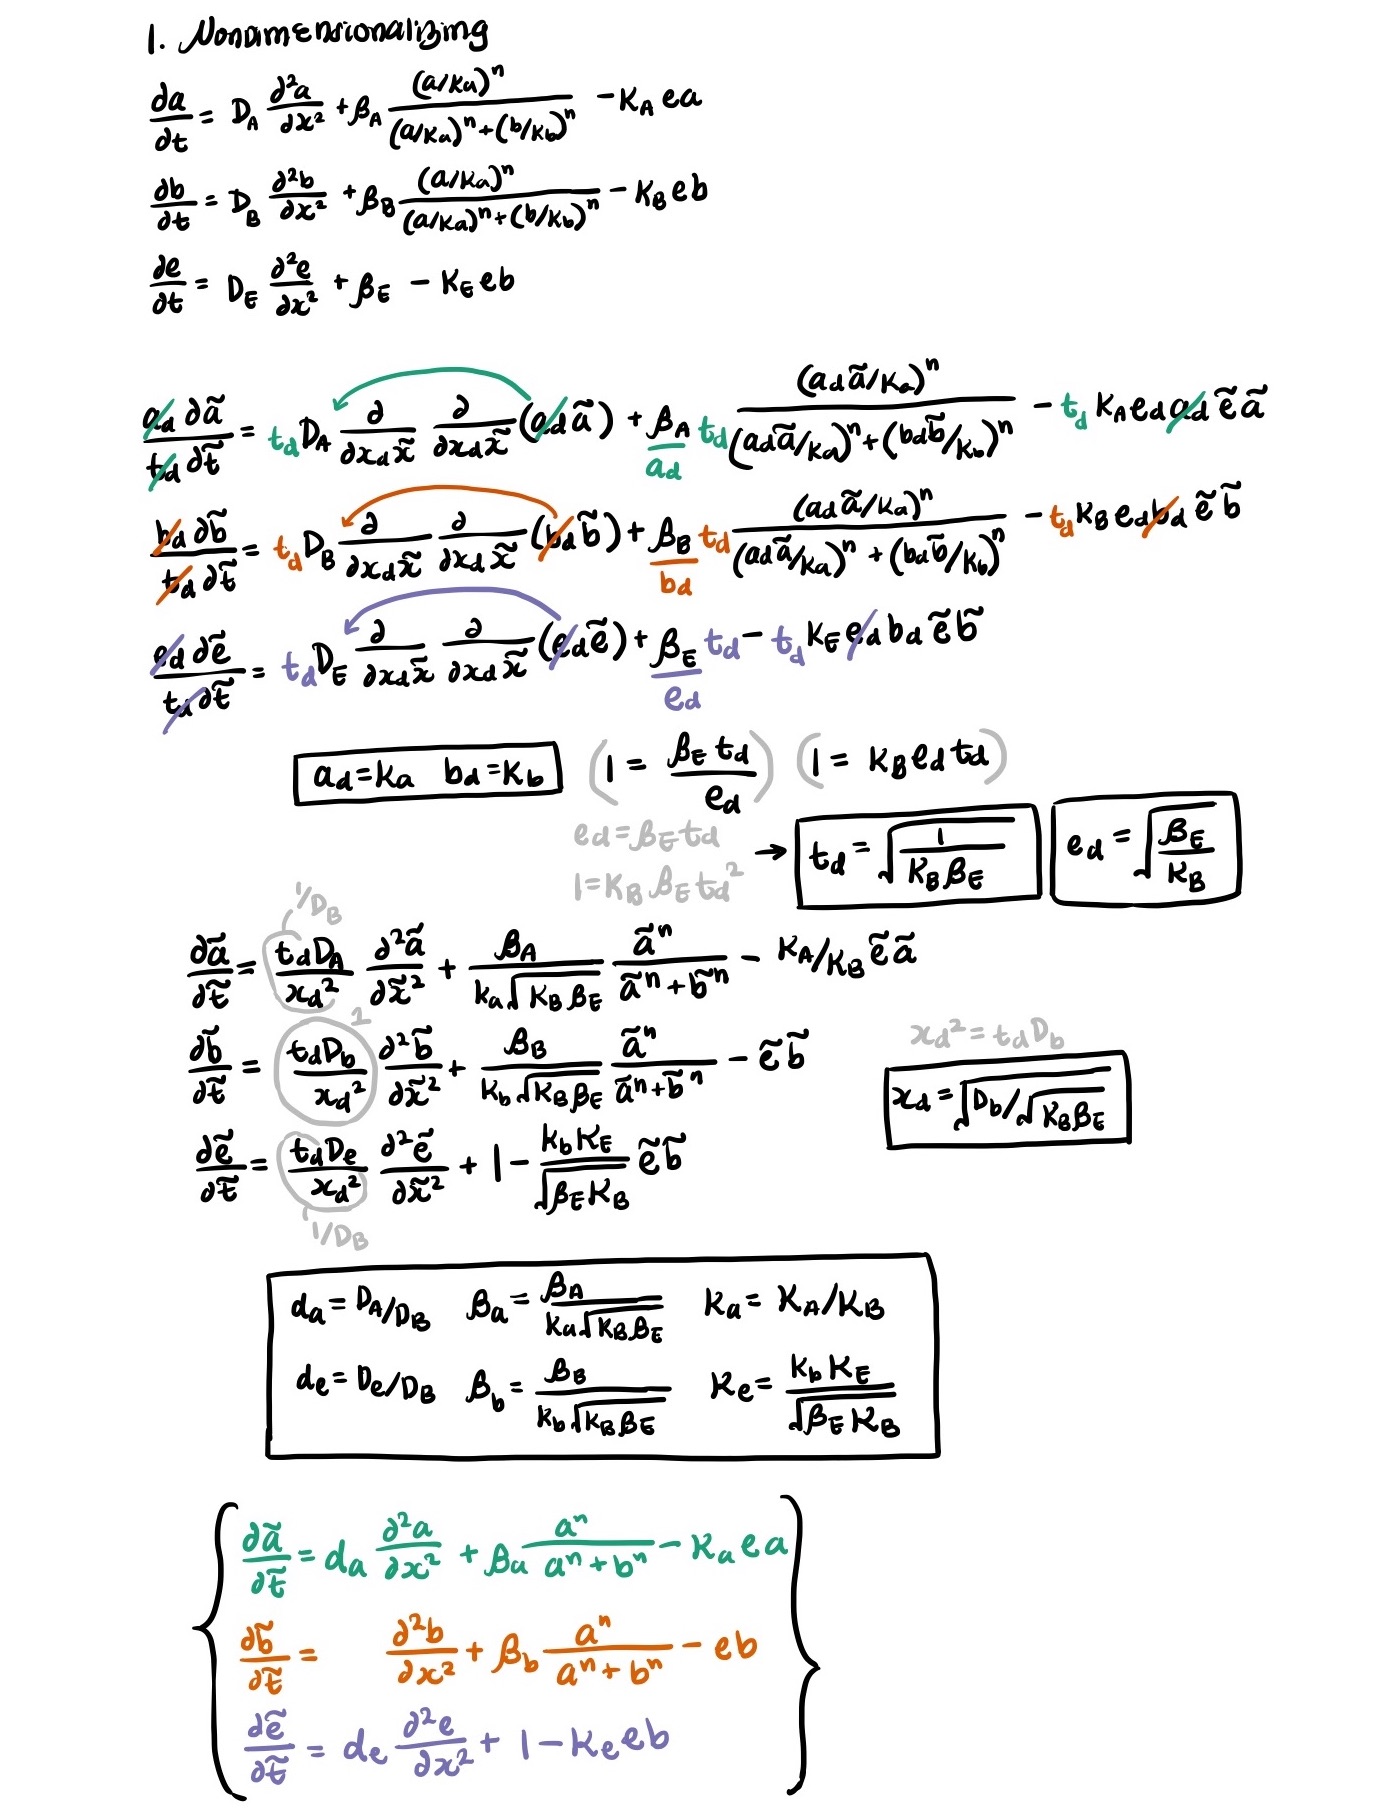 1. Nondimensionalizing
∂a/∂t = D_A ∂²a/∂x² + β_A (a/ka)ⁿ / ((a/ka)ⁿ + (b/kb)ⁿ) − κ_A ea
∂b/∂t = D_B ∂²b/∂x² + β_B (a/ka)ⁿ / ((a/ka)ⁿ + (b/kb)ⁿ) − κ_B eb
∂e/∂t = D_E ∂²e/∂x² + β_E − κ_E eb
a_d ∂ã / t_d ∂t̃ = t_d D_A ∂/∂x_d x̃ ∂/∂x_d x̃ (a_d ã) + β_A/a_d t_d (a_d ã/ka)ⁿ / ((a_d ã/ka)ⁿ + (b_d b̃/kb)ⁿ) − t_d κ_A e_d a_d ẽ ã
b_d ∂b̃ / t_d ∂t̃ = t_d D_B ∂/∂x_d x̃ ∂/∂x_d x̃ (b_d b̃) + β_B/b_d t_d (a_d ã/ka)ⁿ / ((a_d ã/ka)ⁿ + (b_d b̃/kb)ⁿ) − t_d κ_B e_d b_d ẽ b̃
e_d ∂ẽ / t_d ∂t̃ = t_d D_E ∂/∂x_d x̃ ∂/∂x_d x̃ (e_d ẽ) + β_E/e_d t_d − t_d κ_E e_d b_d ẽ b̃
a_d = ka b_d = kb (1 = β_E t_d / e_d) (1 = κ_B e_d t_d)
e_d = β_E t_d
1 = κ_B β_E t_d²
→ t_d = √(1 / κ_B β_E) e_d = √(β_E / κ_B)
1/D_B
∂ã/∂t̃ = t_d D_A / x_d² ∂²ã/∂x̃² + β_A / ka√(κ_B β_E) ãⁿ / (ãⁿ + b̃ⁿ) − κ_A/κ_B ẽ ã
1
∂b̃/∂t̃ = t_d D_b / x_d² ∂²b̃/∂x̃² + β_B / kb√(κ_B β_E) ãⁿ / (ãⁿ + b̃ⁿ) − ẽ b̃
x_d² = t_d D_b
x_d = √(D_b/√(κ_B β_E))
∂ẽ/∂t̃ = t_d D_e / x_d² ∂²ẽ/∂x̃² + 1 − kb κ_E / √(β_E κ_B) ẽ b̃
1/D_B
d_a = D_A/D_B β_a = β_A / ka√(κ_B β_E) κ_a = κ_A/κ_B
d_e = D_e/D_B β_b = β_B / kb√(κ_B β_E) κ_e = kb κ_E / √(β_E κ_B)
∂ã/∂t̃ = d_a ∂²a/∂x² + β_a aⁿ / (aⁿ + bⁿ) − κ_a ea
∂b̃/∂t̃ = ∂²b/∂x² + β_b aⁿ / (aⁿ + bⁿ) − eb
∂ẽ/∂t̃ = d_e ∂²e/∂x² + 1 − κ_e eb